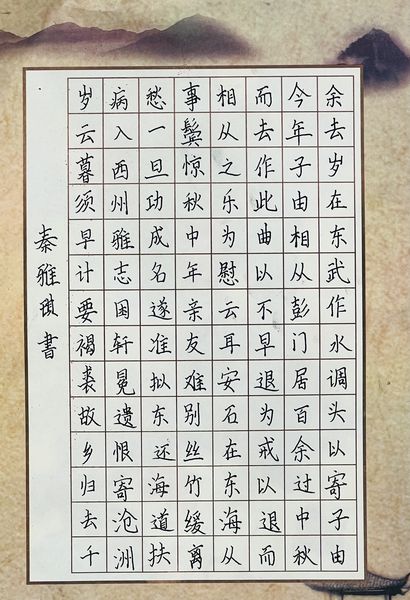 余去岁在东武作水调头以寄子由
今年子由相从彭门居百余过中秋
而去作此曲以不早退为戒以退而
相从之乐为慰云耳安石在东海从
事鬓惊秋中年亲友难别丝竹缓离
愁一旦功成名遂准拟东还海道扶
病入西州雅志困轩冕遗恨寄沧洲
岁云暮须早计要褐裘故乡归去千
秦雅琪書